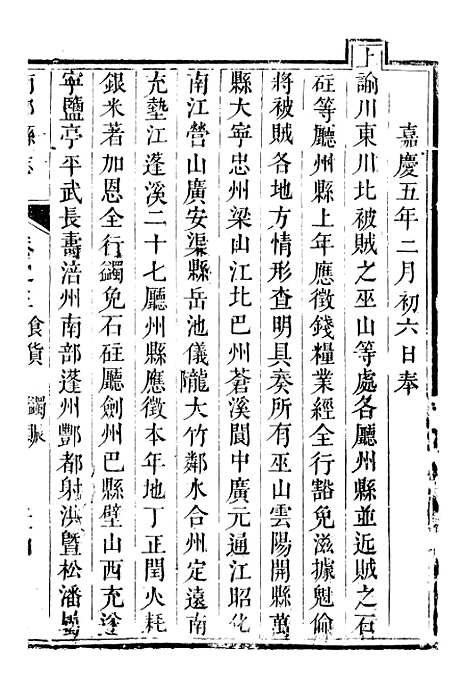 嘉慶五年二月初六日奉
上
諭川東川北被賊之巫山等處各廳州縣並近賊之石
砫等廳州縣上年應徵錢糧業經全行豁免滋據魁倫
將被賊各地方情形查明具奏所有巫山雲陽開縣萬
縣大寧忠州梁山江北巴州蒼溪閬中廣元通江昭化
南江營山廣安渠縣岳池儀隴大竹鄰水合州定遠南
充墊江蓬溪二十七廳州縣應徵本年地丁正閏火耗
銀米著加恩全行蠲免石砫廳劍州巴縣璧山西充遂
寧鹽亭平武長壽涪州南部蓬州酆都射洪暨松潘
縣志 卷之 食貨 蠲賑